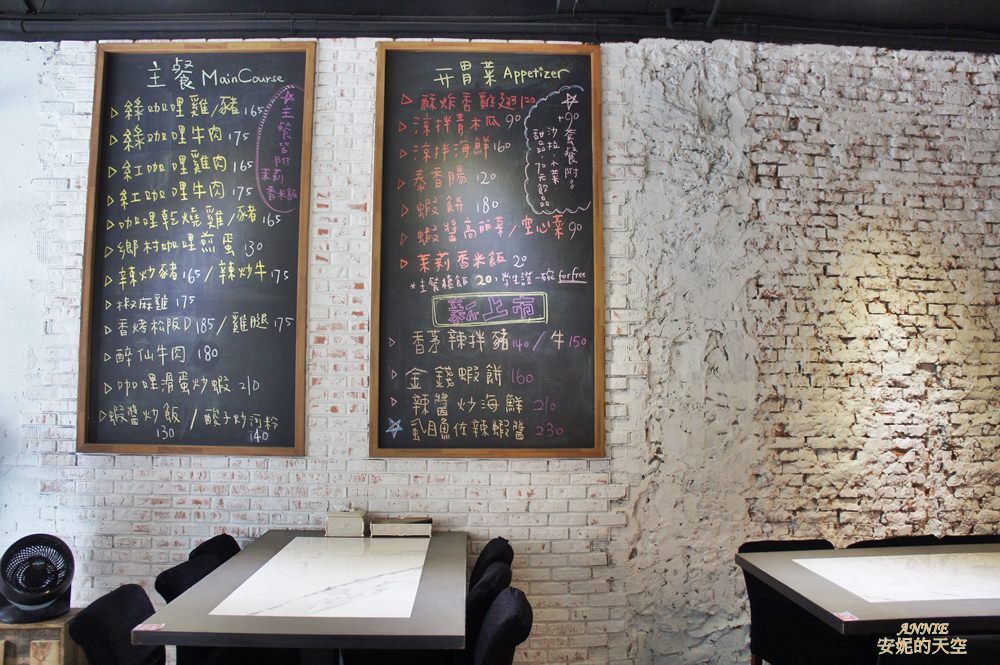 主餐 MainCourse
▷綠咖哩雞/豬 165
▷綠咖哩牛肉 175
▷紅咖哩雞肉 165
▷紅咖哩牛肉 175
▷咖哩乾燒雞/豬 165
▷鄉村咖哩煎蛋 130
▷辣炒豬 165/辣炒牛 175
▷椒麻雞 175
▷香烤松阪D 185/雞腿 175
▷醉仙牛肉 180
▷咖哩滑蛋炒蝦 210
▷蝦醬炒飯 / 酸子炒河粉
130 140
☆主餐皆附
茉莉
香米飯
开胃菜 Appetizer
▷酥炸香雞翅 120
▷涼拌青木瓜 90
▷涼拌海鮮 160
▷泰香腸 120
▷蝦餅 180
▷蝦醬高丽菜/空心菜 90
▷茉莉香米飯 20
*主餐續飯 20,學生證一碗 for free
☆+90套餐附品
沙拉.小菜
甜品.70元飲品
新上市
▷香茅辣拌豬 140/牛 150
▷金錢蝦餅 160
▷辣醬炒海鮮 210
☆虱目魚佐辣蝦醬 230
ANNIE
安妮的天空